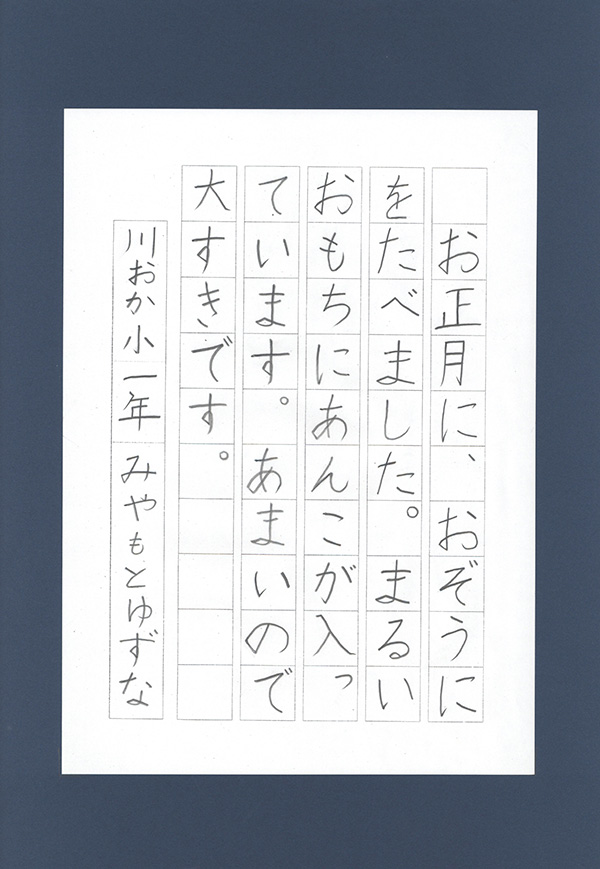 お正月に、おぞうに
をたべました。まるい
おもちにあんこが入っ
ています。あまいので
大すきです。
川おか小一年 みやもとゆずな